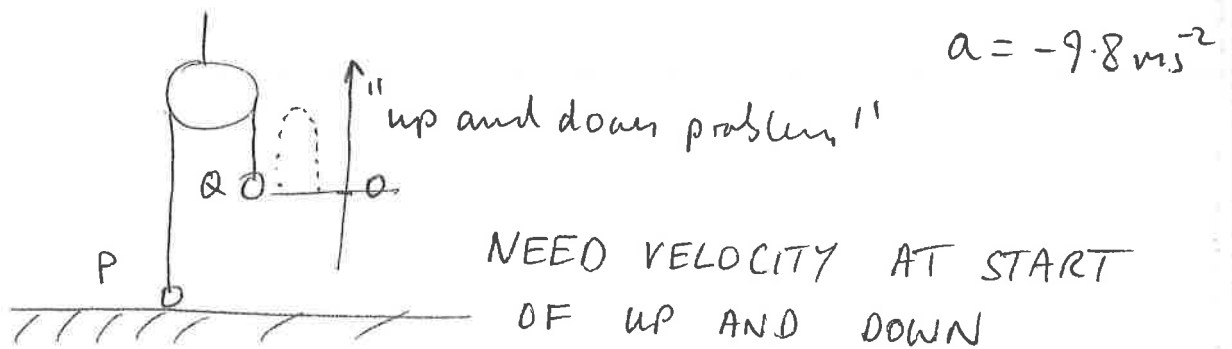 a = -9.8 ms⁻²
"up and down problem"
Q
O
P
NEED VELOCITY AT START
OF UP AND DOWN